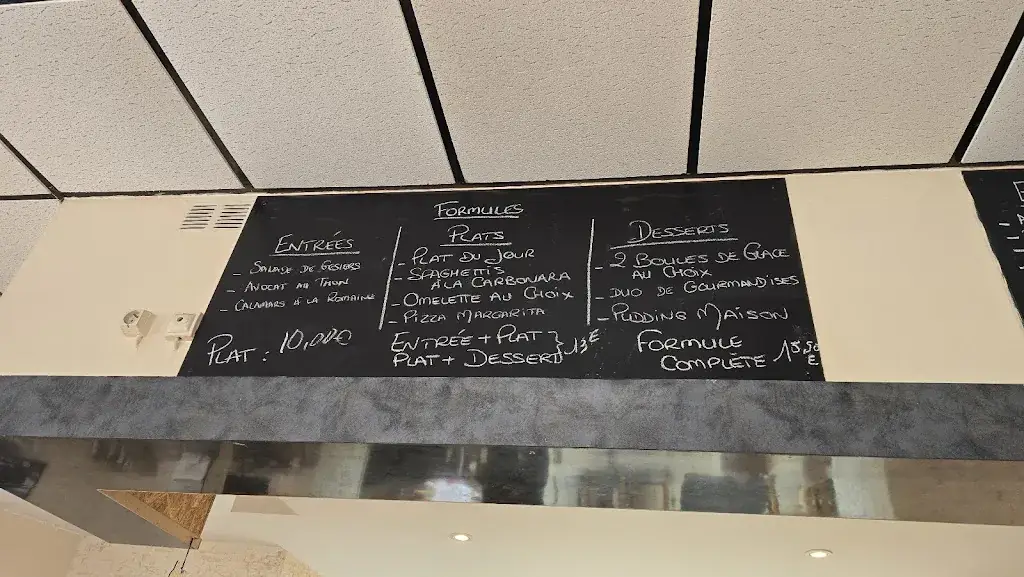 FORMULES
ENTRÉES
- SALADE DE GESIERS
- AVOCAT AU THON
- CALAMARS À LA ROMAINE
PLATS
- PLAT DU JOUR
- SPAGHETTIS
À LA CARBONARA
- OMELETTE AU CHOIX
- PIZZA MARGARITA
DESSERTS
- 2 BOULES DE GLACE
AU CHOIX
- DUO DE GOURMANDISES
- PUDDING MAISON
PLAT : 10,00€
ENTRÉE + PLAT
PLAT + DESSERT } 13€
FORMULE
COMPLÈTE 15,50
€